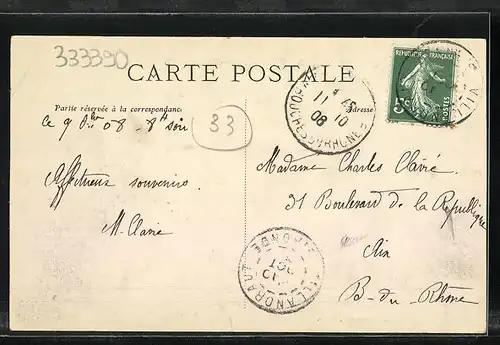 333390
CARTE POSTALE
Partie réservée à la correspondance
Adresse
ce 9 8bre 08 - 8h soir
33
Affectueux souvenirs
M. Clavié
Madame Charles Clavié
31 Boulevard de la République
Aix
B-du-Rhône
REPUBLIQUE FRANÇAISE
5c
POSTES
BOUCHES DU RHONE
11 10
08
VILLANDRAUT
GIRONDE